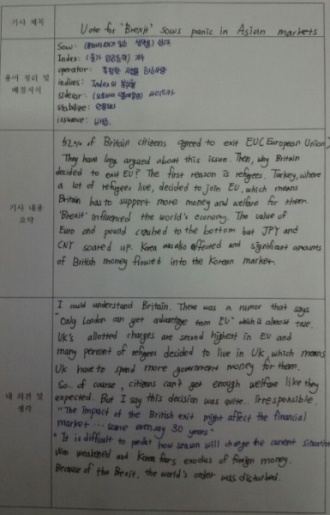 기사 제목
Vote for 'Brexit' sows panic in Asian markets
용어 정리 및
배경지식
Sow:
Index: 지수
operator:
indices: Index의 복수형
sidecar:
stabilize:
issuance:
기사 내용
요약
of Britain citizens agreed to exit EU (European Union)
They have long argued about this issue. Then, why Britain
decided to exit EU? The first reason is refugees. Turkey, where
a lot of refugees live, decided to join EU, which means
Britain has to support more money and welfare for them.
'Brexit' influenced the world's economy. The value of
Euro and pound crashed to the bottom but JPY and
CNY soared up. Korea was also and significant amounts
of British money flowed into the Korean market.
내 의견 및
생각
I could understand Britain. There was a rumor that says
"Only London can get advantage from EU" which is almost true.
UK's allotted charges are second highest in EU and
many percent of refugees decided to live in UK, which means
UK have to spend more government money for them.
So, of course, citizens can't get enough welfare like they
expected. But I say this decision was quite irresponsible.
"The impact of the British exit might affect the financial
market ... 30 years"
"It is difficult to how will change the current situation
Won weakened and Korea exodus of foreign money.
Because of the Brexit, the world's order was disturbed.